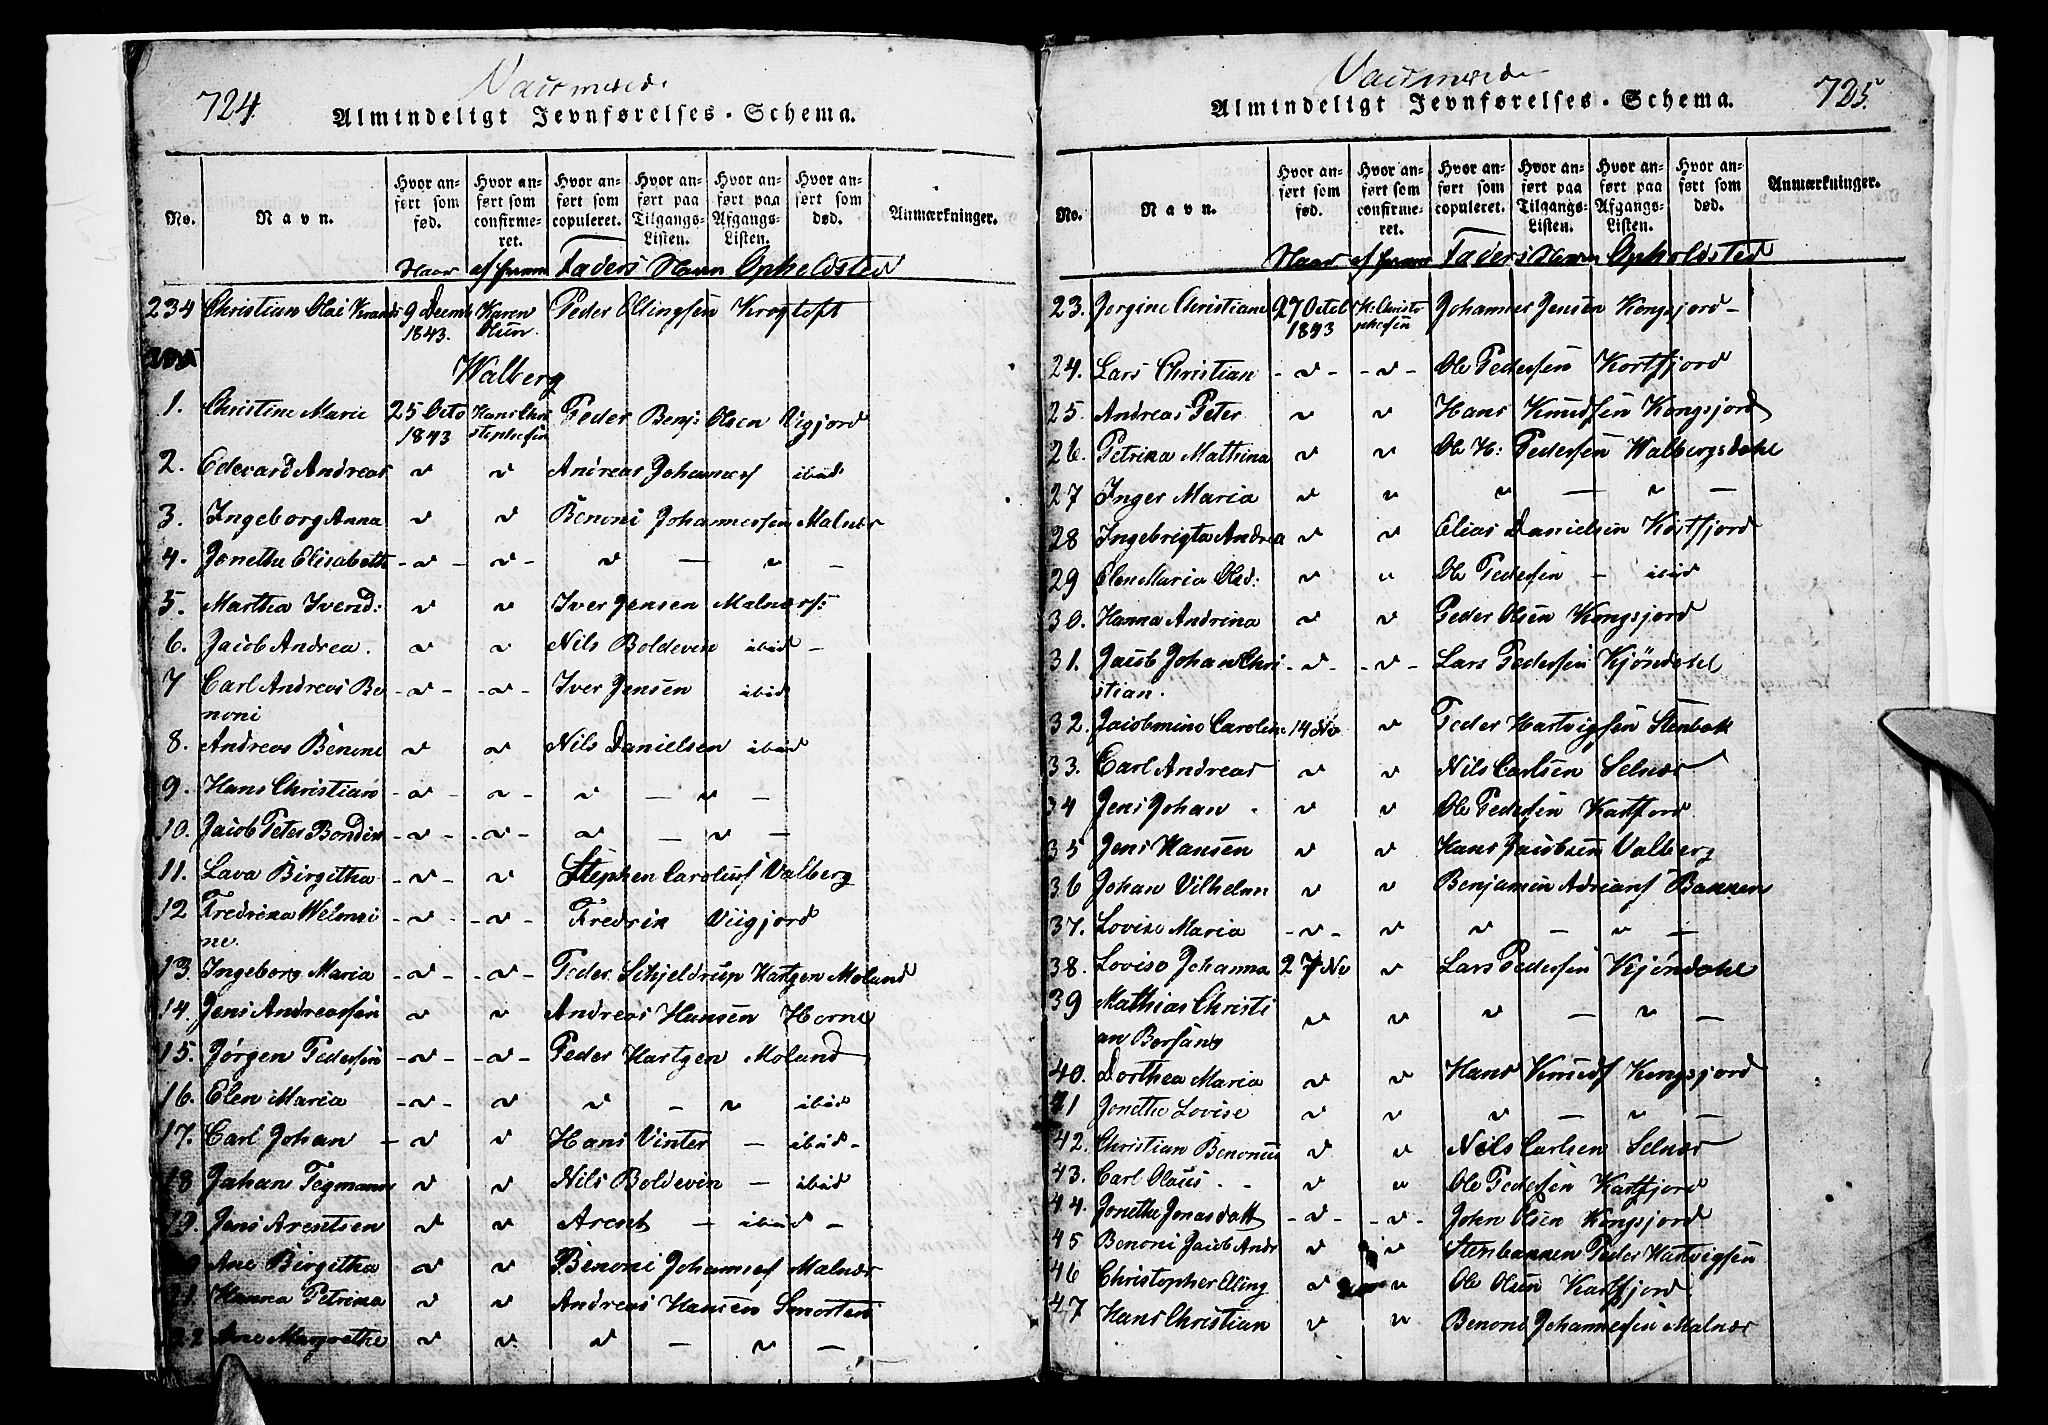 724.
Vaccinerede
Almindeligt Jevnførelses-Schema.
No.
Navn.
Hvor anført som fød.
Hvor anført som confirmeret.
Hvor anført som copuleret.
Hvor anført paa Tilgangs-Listen.
Hvor anført paa Afgangs-Listen.
Hvor anført som død.
Anmærkninger.
Naar af hvem Faders Navn Opholdsted
234 Christian Olai 9 Decemb 1843. Karen Olsen Peder Ellingsen Krogtoft
Walberg
1. Christine Marie 25 Octo 1843 Hans Christophersen Peder Benj: Olsen Vigjord
2. Edevard Andreas " " Andreas Johannes ibid
3. Ingeborg Anna " " Benoni Johannessen Malnær
4. Jonetha Elisabeth - " - " - " — " —
5. Martha Iversd: " " Iver Jensen Malnærs:
6. Jacob Andrea. " " Nils Boldevin ibid -
7 Carl Andreas Be - " - - " - Iver Jensen ibid
noni
8. Andreas Benoni " " Nils Danielsen ibid
9. Hans Christian - " - " - " — " —
10. Jacob Peter Bondin - " - - " - " — " —
11. Lava Birgitha - " - " Stephen Carolus Valberg
12 Fredrika Welmsi - " - " Fredrik Viigjord
ne.
13. Ingeborg Maria - " - - " - Peder Schjeldrup Hartgen Moland
14. Jens Andreassen " " Andreas Hansen Horne
15. Jørgen Pedersen - " - - " - Peder Hartgen Moland
16. Elen Maria - " - " " — " ibid
17. Carl Johan - " " Hans Vinter — ibid -
18 Johan Tegmann " " Nils Boldevin — ibid
19. Jens Arentsen " " Arent — ibid -
Ane Birgitha " " Benoni Johannes Malnær
21. Hanna Petrika " " Andreas Hansen Smorten
22 Ane Margrethe " " " — " —
Vaccinerede
725.
Almindeligt Jevnførelses-Schema.
No.
Navn.
Hvor anført som fød.
Hvor anført som confirmeret.
Hvor anført som copuleret.
Hvor anført paa Tilgangs-Listen.
Hvor anført paa Afgangs-Listen.
Hvor anført som død.
Anmærkninger.
Naar af hvem Faders Navn Opholdsted
23. Jorgine Christiane 27 Octob 1843 H. Christophersen Johannes Jensen Kongsjord -
24. Lars Christian - " - - " - Ole Pedersen Kortfjord
25. Andreas Peter " " Hans Knudsen Kongsjord
26. Petrika Mathina " " Ole H: Pedersen Walbergsdahl
27 Inger Maria " " " — " —
28 Ingebrigta Andrea " " Elias Danielsen Kortfjord
29 Elen Maria Olsd: " " Ole Pedersen - ibid
30. Hanna Andrina " " Peder Olsen Kongsjord
31. Jacob Johan Chri - " - - " - Lars Pedersen Kjöndahl
stian.
32. Jacobmine Caroline 14 No " Peder Hartvigsen Stenbak
33. Carl Andreas " " Nils Carlsen Selnær
34 Jens Johan " " Ole Pedersen Kartfjord
35 Jens Hansen " " Hans Jacobsen Valberg
36 Johan Vilhelm " " Benjamin Adrians Bakken
37. Lovise Maria - " - " " — " —
38. Lovise Johanna 27 No " Lars Pedersen Kjöndahl
39 Mathias Christi " " " — " —
an Borsang
40. Dorthea Maria " " Hans Knuds Kongsjord
41 Jonetha Lovise " " " — " —
42. Christian Benonius " " Nils Carlsen Selnær
43. Carl Olaus " " Ole Pedersen Kartfjord
44. Jonetha Jonasdatt - " - - " - John Olsen Kongsjord
45 Benoni Jacob Andr " " Stenbakken Peder Hartvigsen
46 Christopher Eling " " Ole Olsen Kartfjord
47 Hans Christian " " Benoni Johannessen Malnær